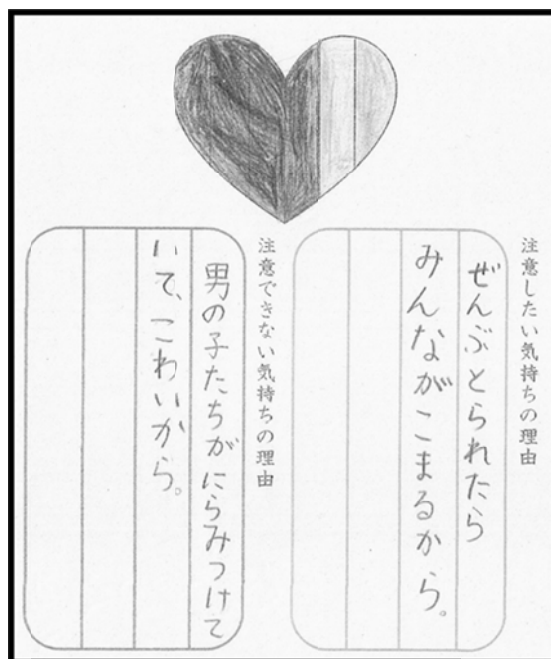 注意したい気持ちの理由
ぜんぶとられたら
みんながこまるから。
注意できない気持ちの理由
男の子たちがにらみつけて
いて、こわいから。